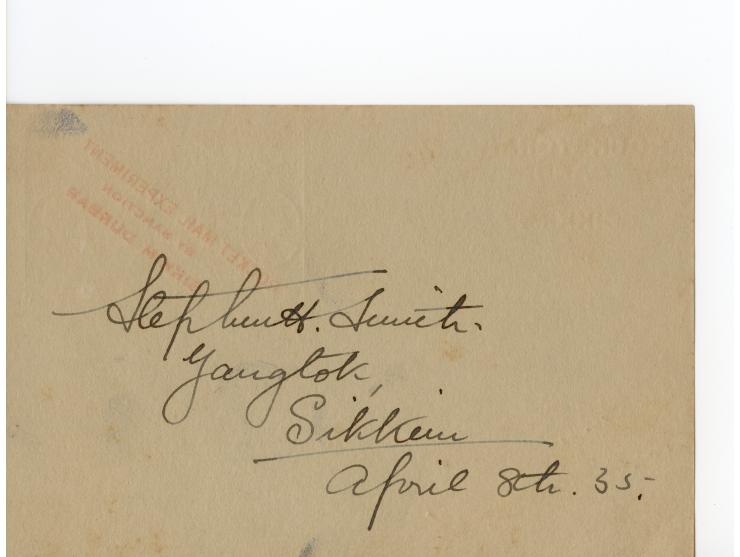 ROCKET MAIL EXPERIMENT
BY SANCTION
SIKKIM DURBAR
Stephen H. Smith.
Gangtok,
Sikkim
April 8th. 35.